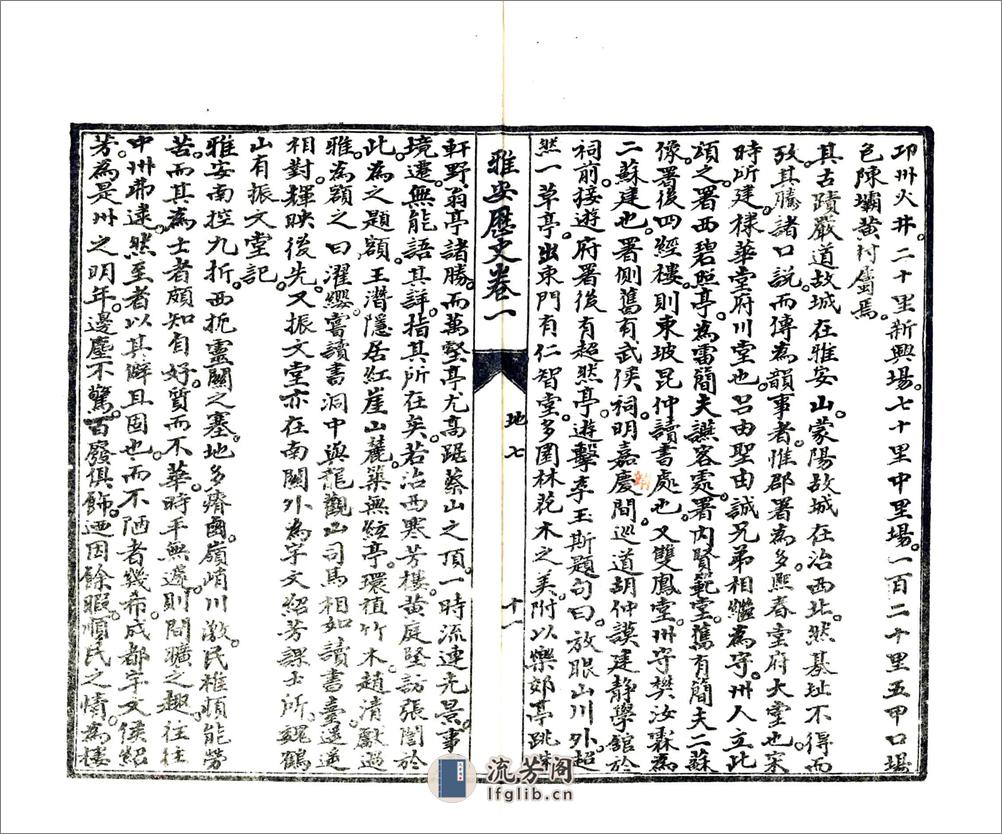 邛州火井。二十里新興場。七十里中里場。一百二十里五甲口場
色陳壩黃村屬焉。
其古蹟嚴道故城在雅安山。蒙陽故城在治西北。然基址不得而
攷。其騰諸口說。而傳為韻事者。惟郡署為多。熙春堂府大堂也。宋
時所建樣華堂府川堂也。呂由聖由誠兄弟相繼為守。州人立此
頌之。署西碧照亭。為雷簡夫讌客處。署內賢範堂。舊有簡夫二蘇
像。署後四經樓。則東坡昆仲讀書處也。又雙鳳堂。州守樊汝霖為
二蘇建也。署側舊有武侯祠。明嘉慶間巡道胡仲謨建靜學館於
祠前。接遊府署後有超然亭。遊擊李玉斯題句曰。放眼山川外。超
然一草亭。出東門有仁智堂。多園林花木之美。附以樂郊亭跳珠
雅安歷史卷一
地七
十一
軒野翁亭諸勝。而萬壑亭尤高踞蔡山之頂。一時流連光景。事
境遷。無能語其詳。指其所在矣。若治西寒芳樓。黄庭堅訪張誾於
此。為之題額。王潛隱居紅崖山麓。築無絃亭。環植竹木。趙清獻過
雅為額之曰濯纓。嘗讀書洞中。與龍觀山司馬相如讀書臺遥遥
相對。輝映後先。又振文堂亦在南關外。為宇文紹芳課士所。魏鶴
山有振文堂記。
雅安南控九折。西扼靈關之塞。地多瘠鹵。嶺峭川激。民椎頓能勞
苦。而其為士者頗知自好。質而不華。時平無邊。則閒曠之趣。往往
中州弗逮。然至者以其僻且固也。而不陋者幾希。成都宇文侯紹
芳為是州之明年。邊塵不驚。百廢俱飾。廼因餘暇。順民之情。為樓
流芳阁
lfglib.cn